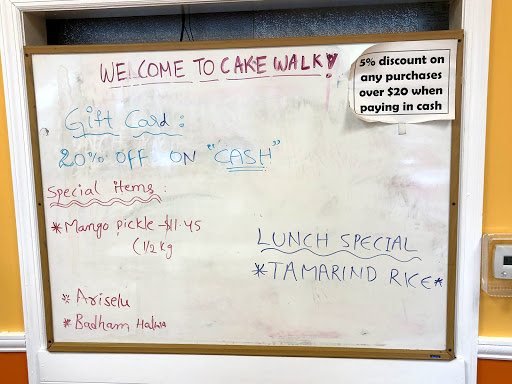 WELCOME TO CAKE WALK!
5% discount on
any purchases
over $20 when
paying in cash
Gift Card:
20% OFF ON "CASH"
Special items:
*Mango pickle-$11.45
(1/2 kg
* Ariselu
* Badham Halwa
LUNCH SPECIAL
*TAMARIND RICE*